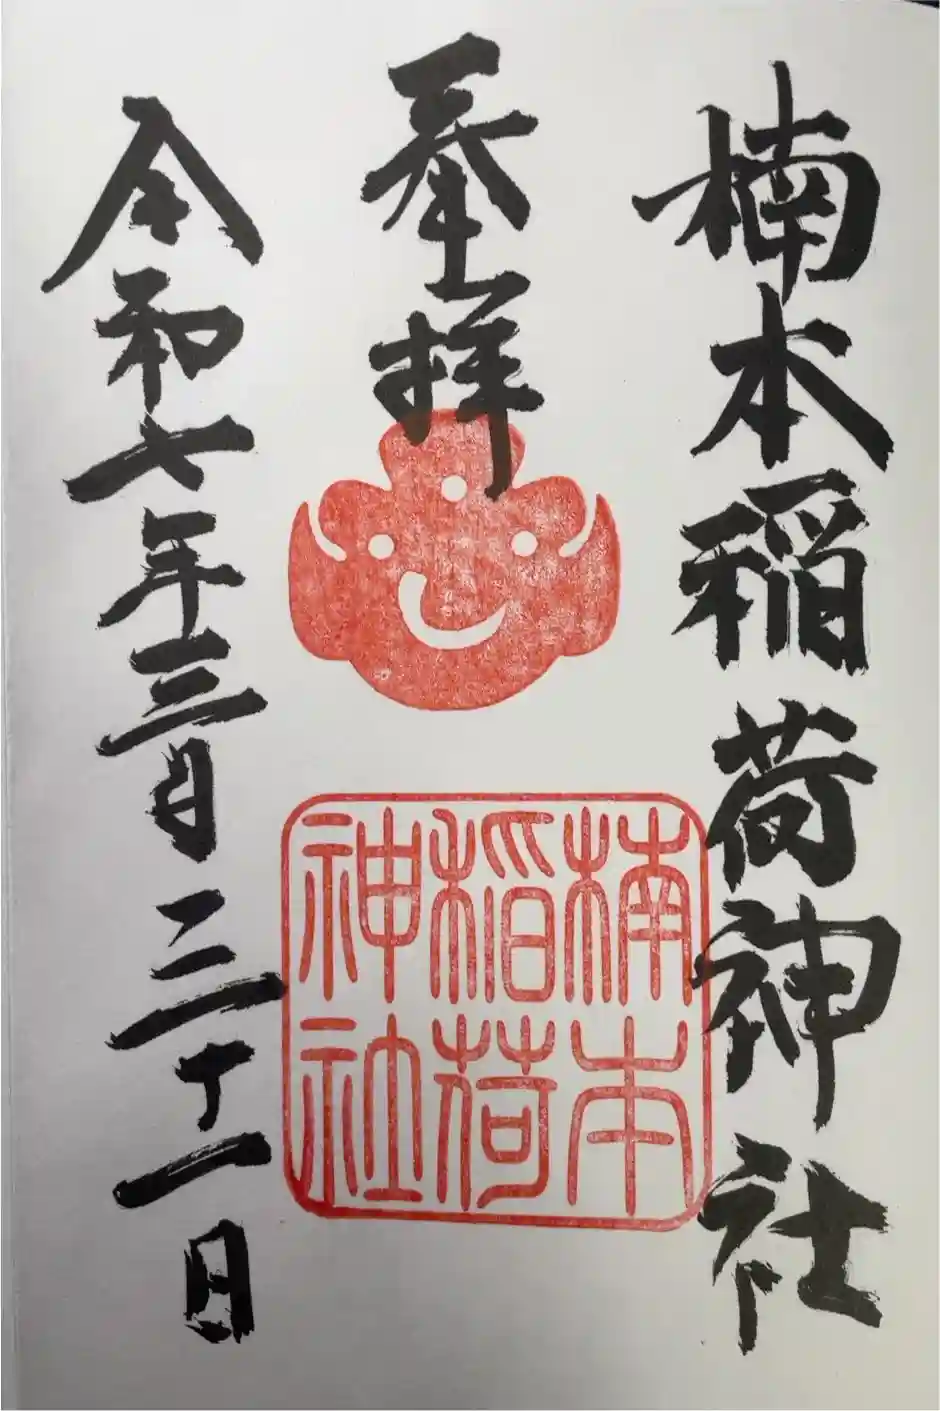 楠本稲荷神社
奉拝
令和七年三月三十一日
楠本
稲荷
神社